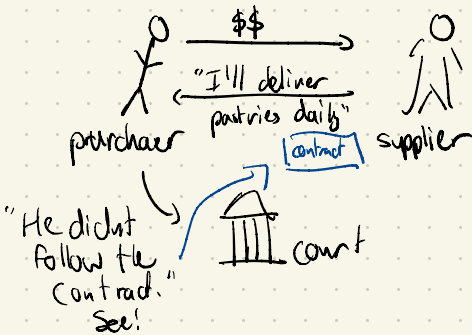 $$
"I'll deliver
pastries daily"
purchaer
supplier
contract
"He didnt
follow the
contract."
See!
court